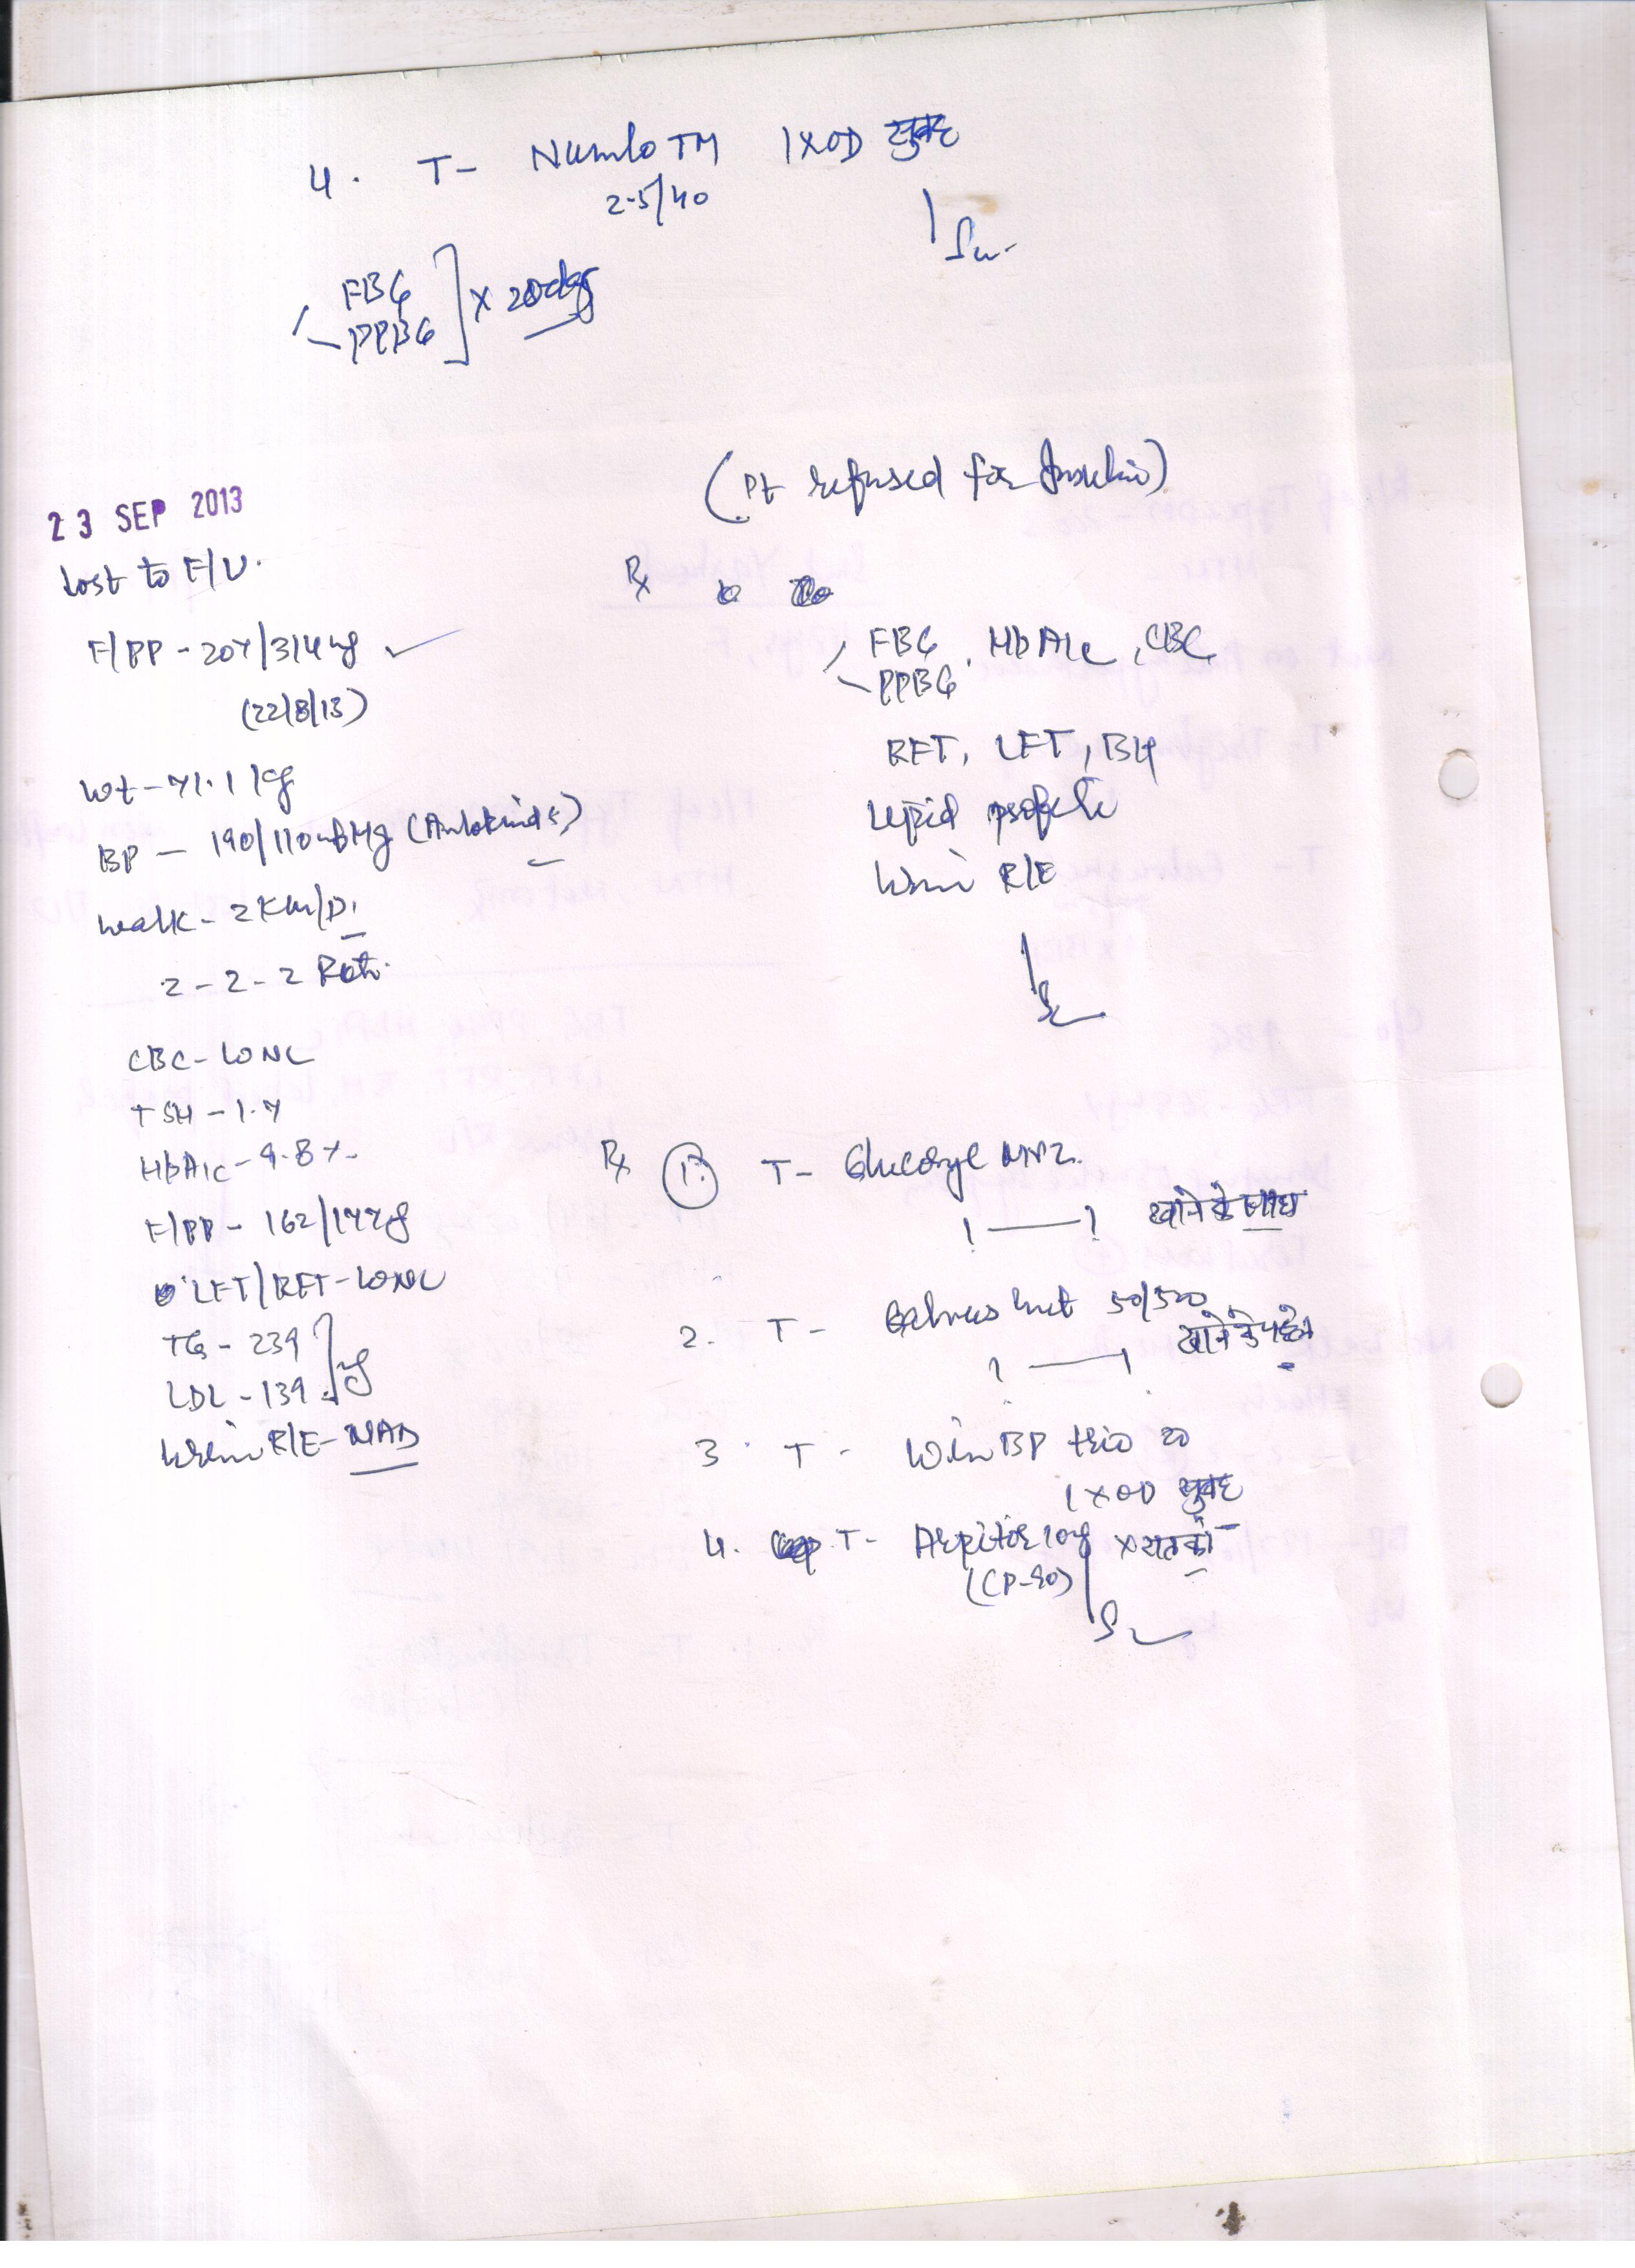 4. T- Numlo TM 1XOD सुबह
2.5/40
FBG
PPBG ] X 20 days
(Pt refused for Insulin)
23 SEP 2013
Lost to F/U.
F/PP - 207/314 mg
(22/8/13)
Wt - 71.1 kg
BP - 190/110 mmHg (Amlokind 5)
Walk - 2 Km/D.
2-2-2 Roti.
Rx
FBG, HbA1c, CBC
PPBG
RFT, LFT, TSH
Lipid profile
Urine R/E
CBC - WNL
TSH - 1.7
HbA1c - 9.8%
F/PP - 162/177 mg
LFT/RFT - WNL
TG - 239
LDL - 139 ] mg
Urine R/E - NAD
Rx 1. T- Glucoryl MV2.
1 — 1 खाने के साथ
2. T- Galvus Met 50/500
1 — 1 खाने के पहले
3. T- Win BP trio 20
1 X OD सुबह
4. T- Aepitor 10mg X रात को